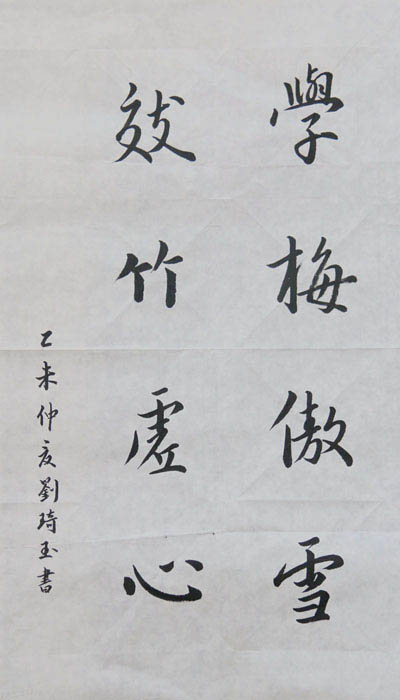 學梅傲雪
效竹虛心
乙未仲夏劉琦玉書